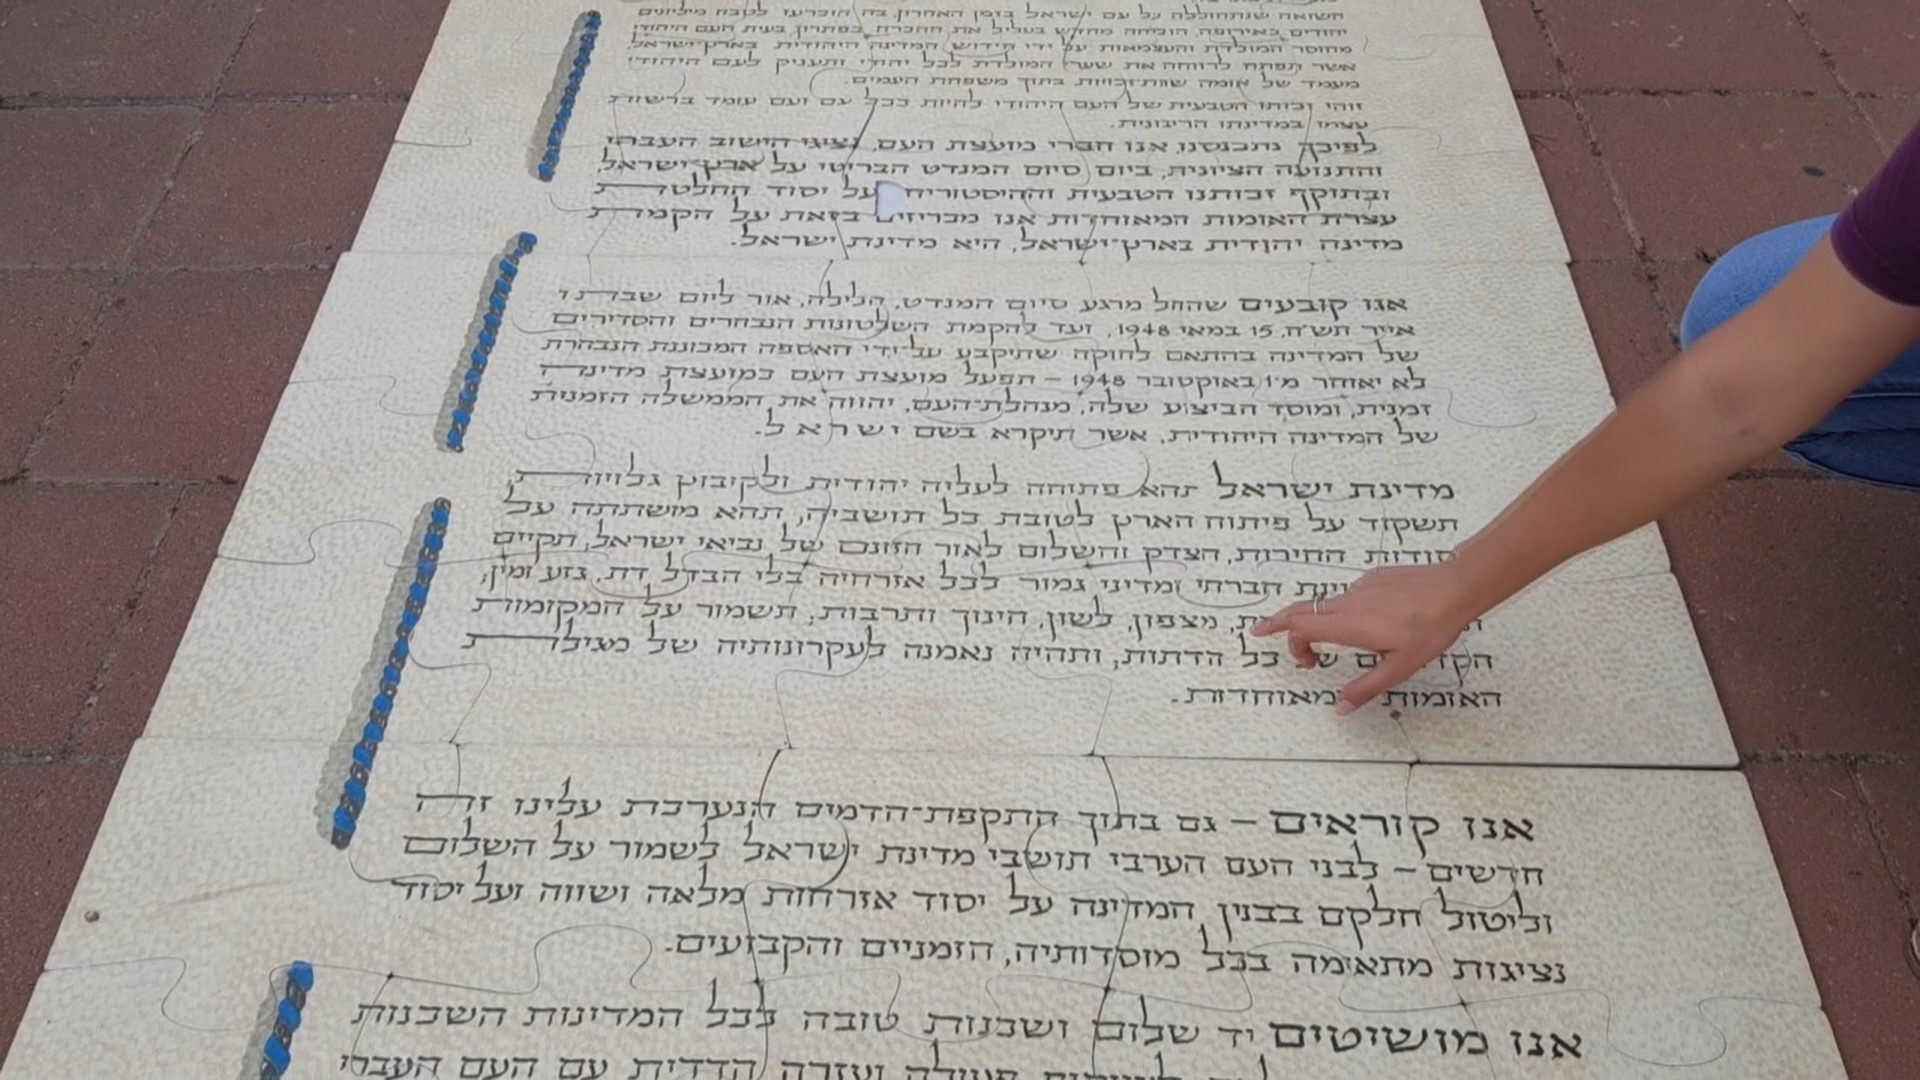 השואה שנתחוללה על עם ישראל בזמן האחרון, בה הוכרעו לטבח מיליונים
יהודים באירופה, הוכיחה מחדש בעליל את ההכרח בפתרון בעית העם היהודי
מחוסר המולדת והעצמאות על ידי חידוש המדינה היהודית בארץ־ישראל,
אשר תפתח לרווחה את שערי המולדת לכל יהודי ותעניק לעם היהודי
מעמד של אומה שוות־זכויות בתוך משפחת העמים.
זוהי זכותו הטבעית של העם היהודי להיות ככל עם ועם עומד ברשות
עצמו במדינתו הריבונית.
לפיכך נתכנסנו, אנו חברי מועצת העם, נציגי הישוב העברי
והתנועה הציונית, ביום סיום המנדט הבריטי על ארץ־ישראל,
ובתוקף זכותנו הטבעית וההיסטורית על יסוד החלטת
עצרת האומות המאוחדות אנו מכריזים בזאת על הקמת
מדינה יהודית בארץ־ישראל, היא מדינת ישראל.
אנו קובעים שהחל מרגע סיום המנדט, הלילה, אור ליום שבת ו
אייר תש״ח, 15 במאי 1948, ועד להקמת השלטונות הנבחרים והסדירים
של המדינה בהתאם לחוקה שתיקבע על־ידי האספה המכוננת הנבחרת
לא יאוחר מ־1 באוקטובר 1948 – תפעל מועצת העם כמועצת מדינה
זמנית, ומוסד הביצוע שלה, מנהלת־העם, יהווה את הממשלה הזמנית
של המדינה היהודית, אשר תיקרא בשם ישראל.
מדינת ישראל תהא פתוחה לעליה יהודית ולקיבוץ גלויות,
תשקוד על פיתוח הארץ לטובת כל תושביה, תהא מושתתה על
יסודות החירות, הצדק והשלום לאור חזונם של נביאי ישראל, תקיים
חברתי ומדיני גמור לכל אזרחיה בלי הבדל דת, גזע ומין,
מצפון, לשון, חינוך ותרבות, תשמור על המקומות
של כל הדתות, ותהיה נאמנה לעקרונותיה של מגילת
האומות המאוחדות.
אנו קוראים – גם בתוך התקפת־הדמים הנערכת עלינו זה
חדשים – לבני העם הערבי תושבי מדינת ישראל לשמור על השלום
וליטול חלקם בבנין המדינה על יסוד אזרחות מלאה ושווה ועל יסוד
נציגות מתאימה בכל מוסדותיה, הזמניים והקבועים.
אנו מושיטים יד שלום ושכנות טובה לכל המדינות השכנות
פעולה ועזרה הדדית עם העם העברי